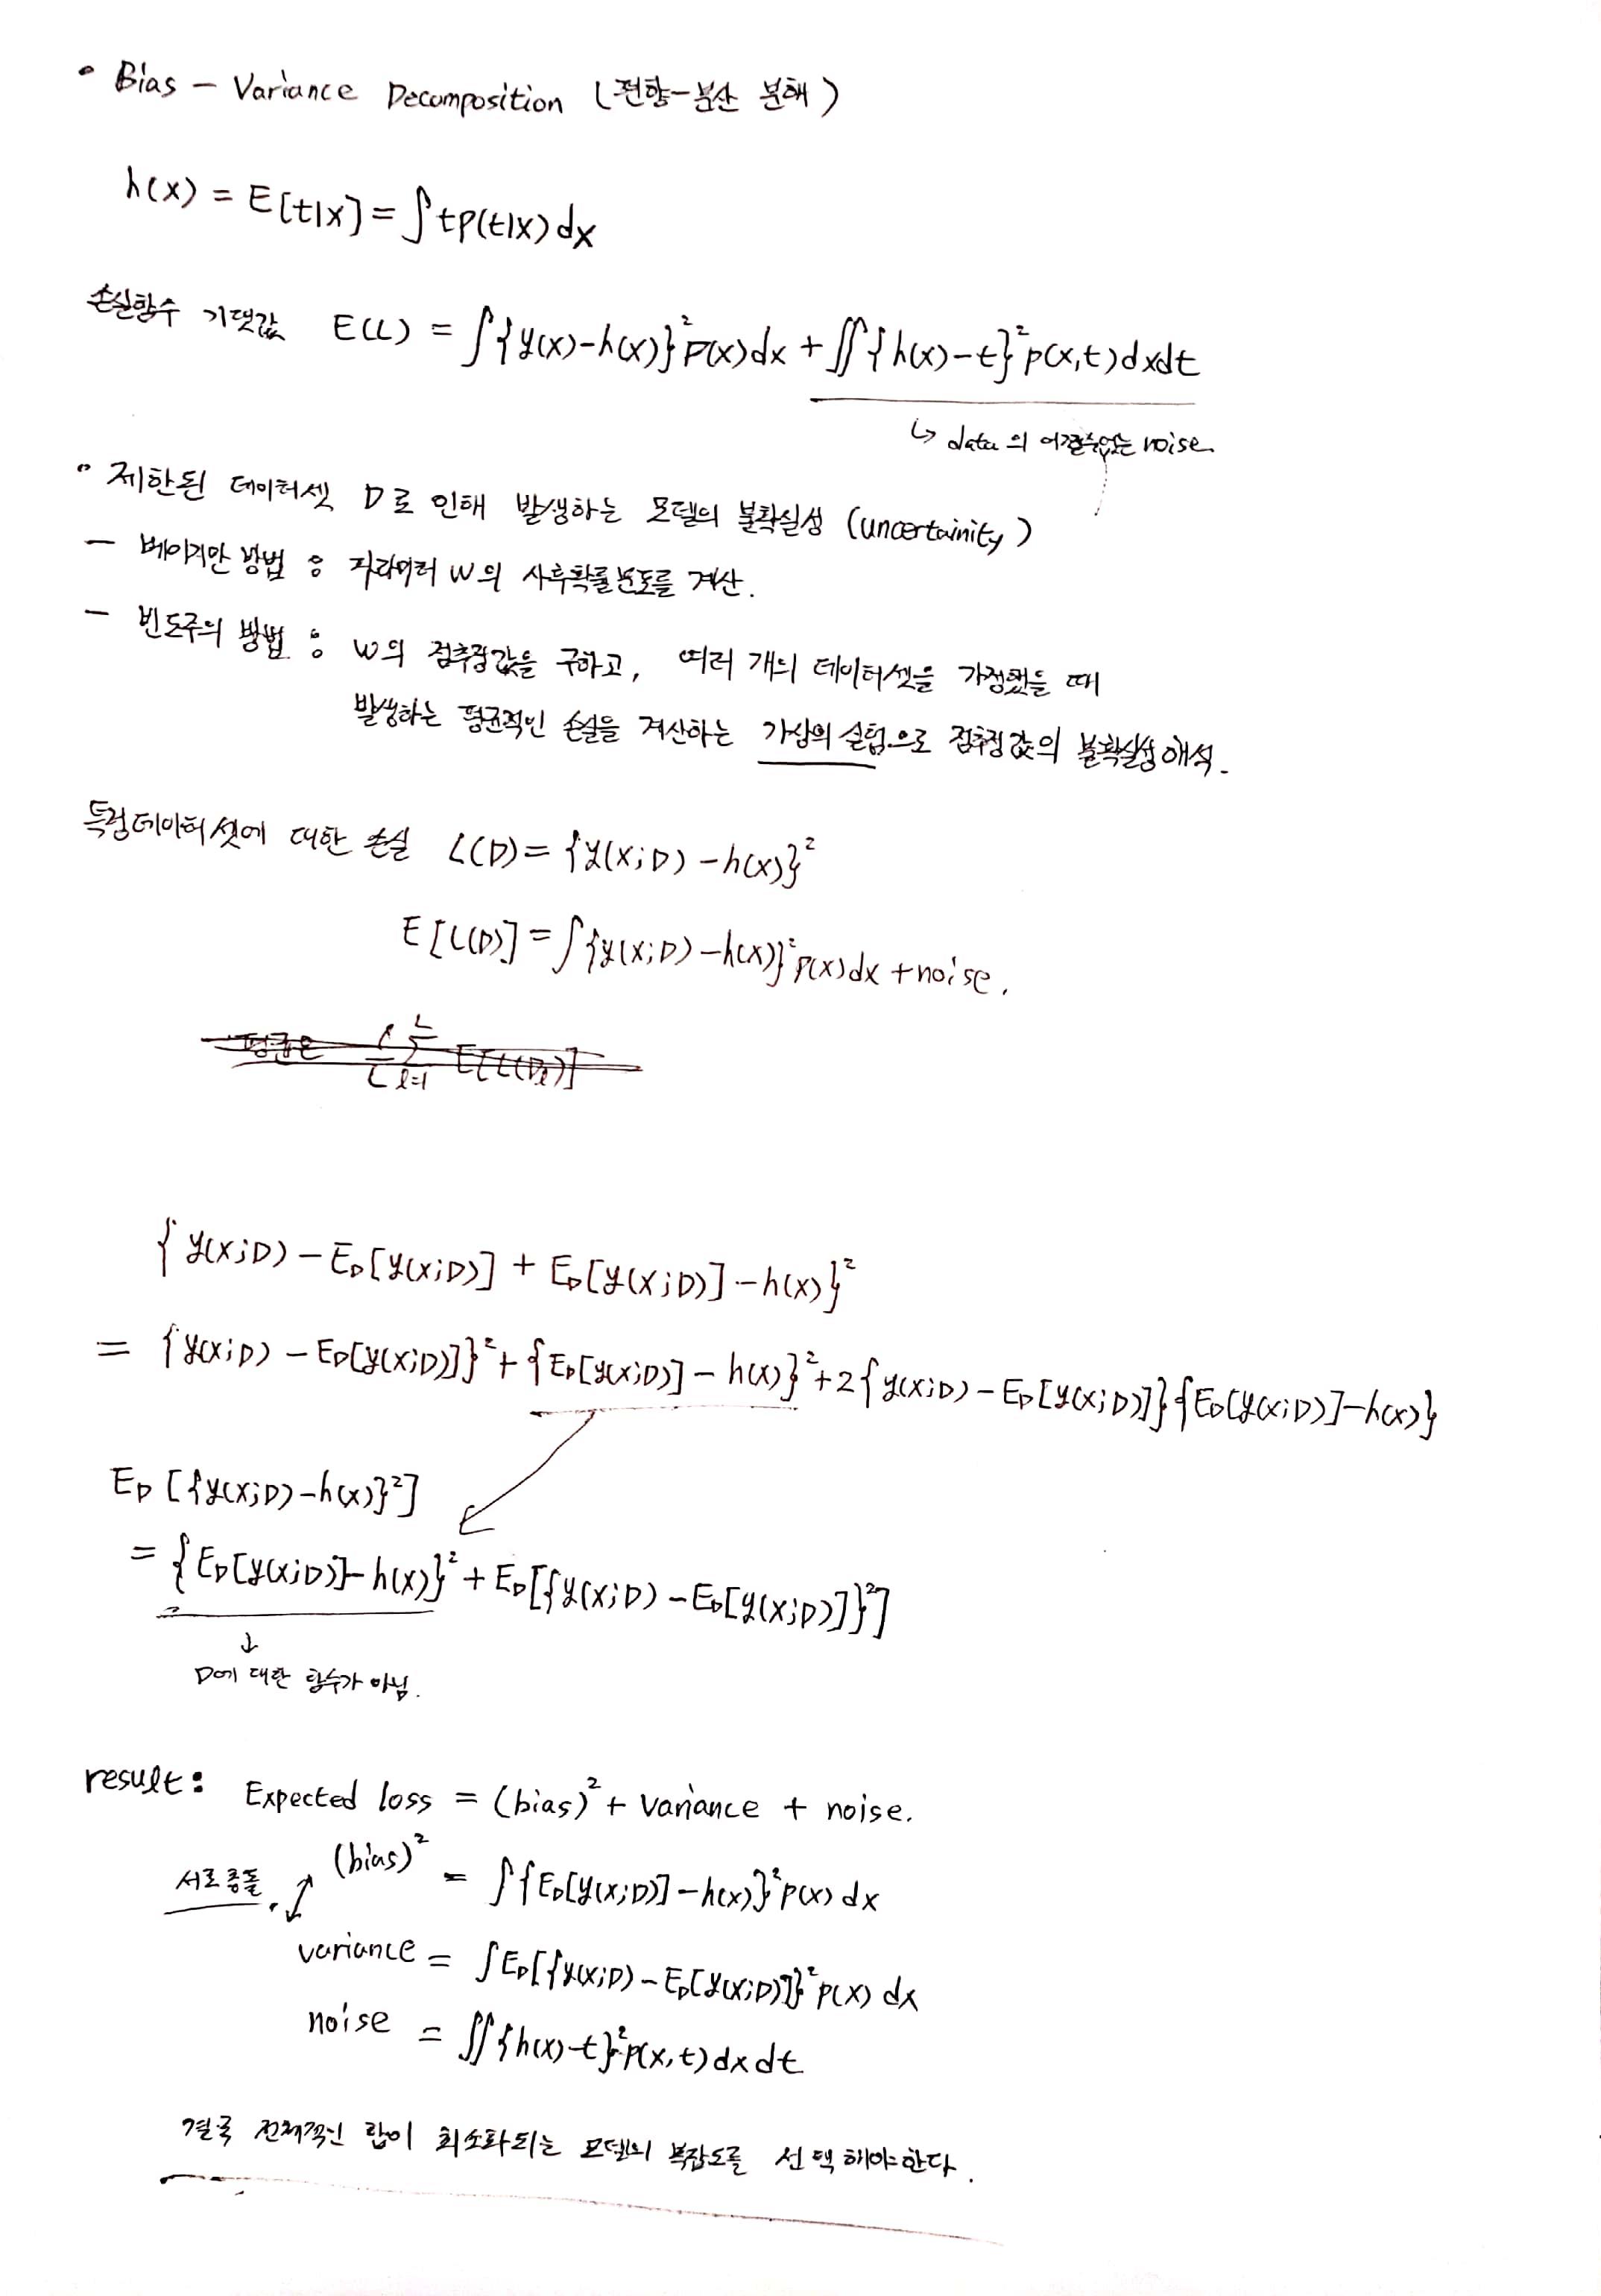 • Bias - Variance Decomposition (편향-분산 분해)
h(x) = E[t|x] = ∫tp(t|x)dx
손실함수 기댓값 E(L) = ∫{y(x)-h(x)}²p(x)dx + ∬{h(x)-t}²p(x,t)dxdt
↳ data의 어쩔수없는 noise.
• 제한된 데이터셋 D로 인해 발생하는 모델의 불확실성 (uncertainity)
- 베이지안 방법 : 파라미터 w의 사후확률분포를 계산.
- 빈도주의 방법 : w의 점추정값을 구하고, 여러 개의 데이터셋을 가정했을 때
발생하는 평균적인 손실을 계산하는 가상의 실험으로 점추정값의 불확실성 해석.
특정데이터셋에 대한 손실 L(D) = {y(x;D) - h(x)}²
E[L(D)] = ∫{y(x;D) - h(x)}²p(x)dx + noise.
평균은 1/L Σ_{l=1}^{L} E[L(D_l)]
{y(x;D) - E_D[y(x;D)] + E_D[y(x;D)] - h(x)}²
= {y(x;D) - E_D[y(x;D)]}² + {E_D[y(x;D)] - h(x)}² + 2{y(x;D) - E_D[y(x;D)]}{E_D[y(x;D)] - h(x)}
E_D[{y(x;D) - h(x)}²]
= {E_D[y(x;D)] - h(x)}² + E_D[{y(x;D) - E_D[y(x;D)]}²]
↓
D에 대한 함수가 아님.
result: Expected loss = (bias)² + variance + noise.
서로충돌. (bias)² = ∫{E_D[y(x;D)] - h(x)}²p(x)dx
variance = ∫E_D[{y(x;D) - E_D[y(x;D)]}²p(x)dx
noise = ∬{h(x)-t}²p(x,t)dxdt
결국 전체적인 합이 최소화되는 모델의 복잡도를 선택해야한다.